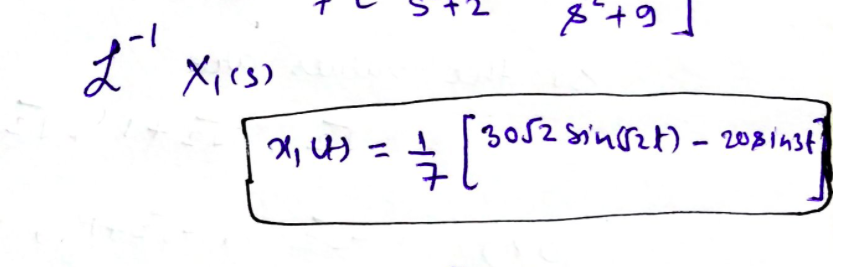 s+2 s²+9 ]
ℒ⁻¹ X₁(s)
x₁(t) = 1/7 [30√2 sin(√2t) - 20sin3t]